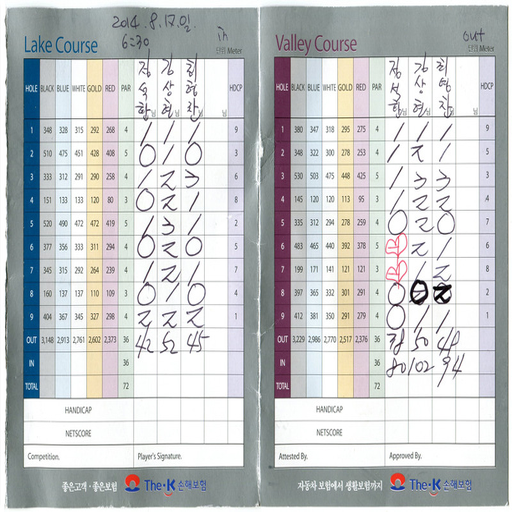 2014. 8. 17. 일.
6:30
in
Lake Course
단위 Meter
HOLE BLACK BLUE WHITE GOLD RED PAR 님 님 님 님 HDCP
1 348 328 315 292 268 4 1 1 1 9
2 510 475 451 428 408 5 0 1 0 3
3 333 312 291 290 258 4 1 2 3 6
4 151 133 133 120 80 3 0 2 1 8
5 520 490 472 472 419 5 1 3 1 2
6 377 356 333 311 294 4 0 2 0 5
7 345 315 292 264 239 4 1 2 1 7
8 160 137 137 110 109 3 0 1 0 4
9 404 367 345 327 298 4 2 2 2 1
OUT 3,148 2,913 2,761 2,602 2,373 36 42 52 45
IN 36
TOTAL 72
HANDICAP
NETSCORE
Competition. Player's Signature.
좋은고객·좋은보험 The·K 손해보험
out
Valley Course
단위 Meter
HOLE BLACK BLUE WHITE GOLD RED PAR 님 님 님 님 HDCP
1 380 347 318 295 275 4 1 1 1 9
2 348 322 300 278 253 4 1 2 1 5
3 530 503 475 448 425 5 1 3 3
4 145 120 120 113 95 3 1 2 2
5 335 312 294 278 259 4 0 2 0
6 483 465 440 392 378 5 B 2 1
7 199 171 141 121 121 3 B 1 2 8
8 397 365 332 301 291 4 0 0 2 2
9 412 381 350 291 279 4 0 1 1 1
OUT 3,229 2,986 2,770 2,517 2,376 36 38 50 49
IN 36 80 102 94
TOTAL 72
HANDICAP
NETSCORE
Attested By. Approved By.
자동차 보험에서 생활보험까지 The·K 손해보험